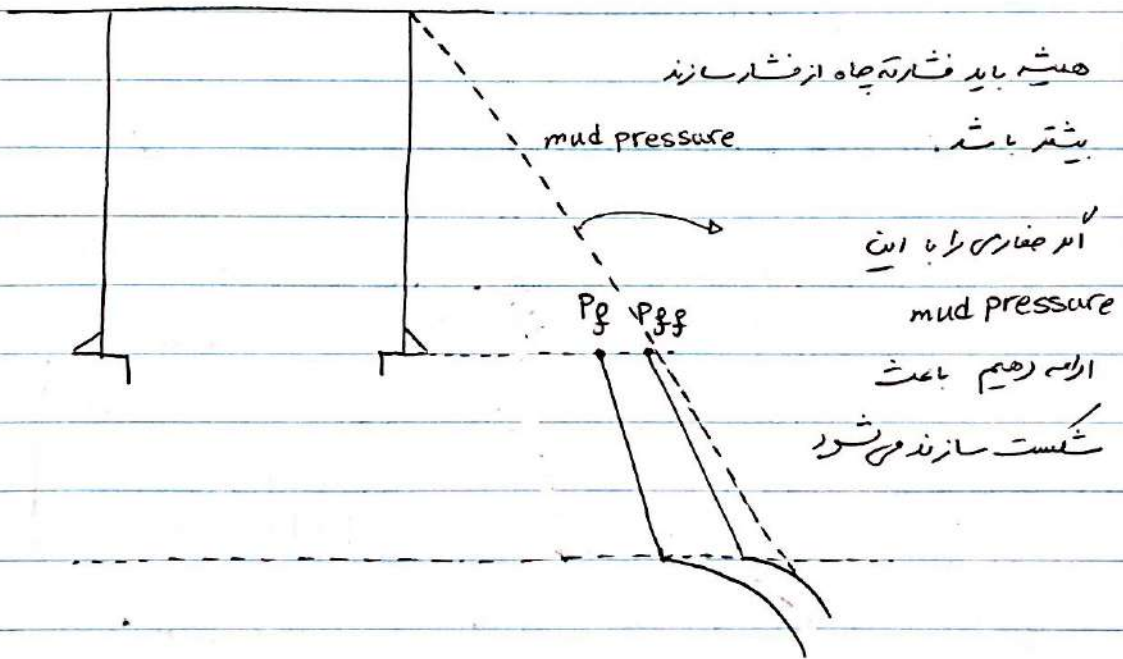 همیشه باید فشار ته چاه از فشار سازند
بیشتر باشد.
mud pressure
اگر حفاری را با این
mud pressure
ادامه دهیم باعث
شکست سازند می‌شود
Pf Pff